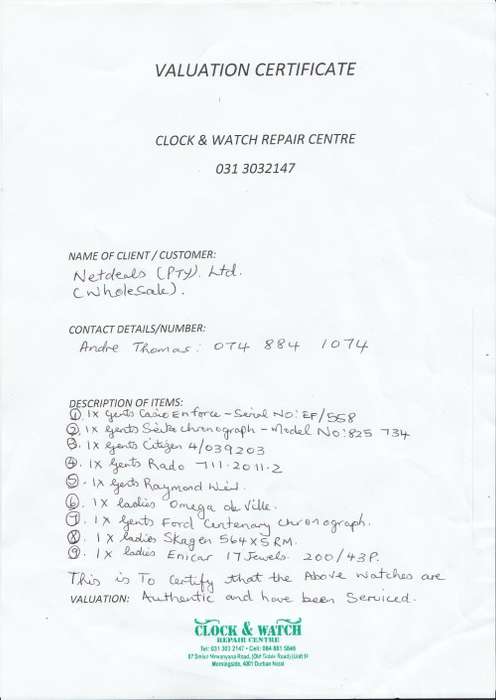 VALUATION CERTIFICATE
CLOCK & WATCH REPAIR CENTRE
031 3032147
NAME OF CLIENT / CUSTOMER:
Netdeals (PTY). Ltd.
(Wholesale).
CONTACT DETAILS/NUMBER:
Andre Thomas: 074 884 1074
DESCRIPTION OF ITEMS:
① 1x gents Casio Enforce - Serial No: EF/558
②. 1x gents Seiko chronograph - Model No: 825 734
③. 1x gents Citizen 4/039203
④. 1x gents Rado 711.2011.2
⑤. 1x gents Raymond Weil.
⑥. 1x ladies Omega de Ville.
⑦. 1x gents Ford Centenary chronograph.
⑧. 1x ladies Skagen 564XSRM.
⑨. 1x ladies Enicar 17 Jewels. 200/43P.
This is To Certify that the Above watches are
VALUATION: Authentic and have been Serviced.
CLOCK & WATCH
REPAIR CENTRE
Tel: 031 303 2147 • Cell: 084 881 5846
Road, (Old Road)
Morningside, 4001 Durban Natal